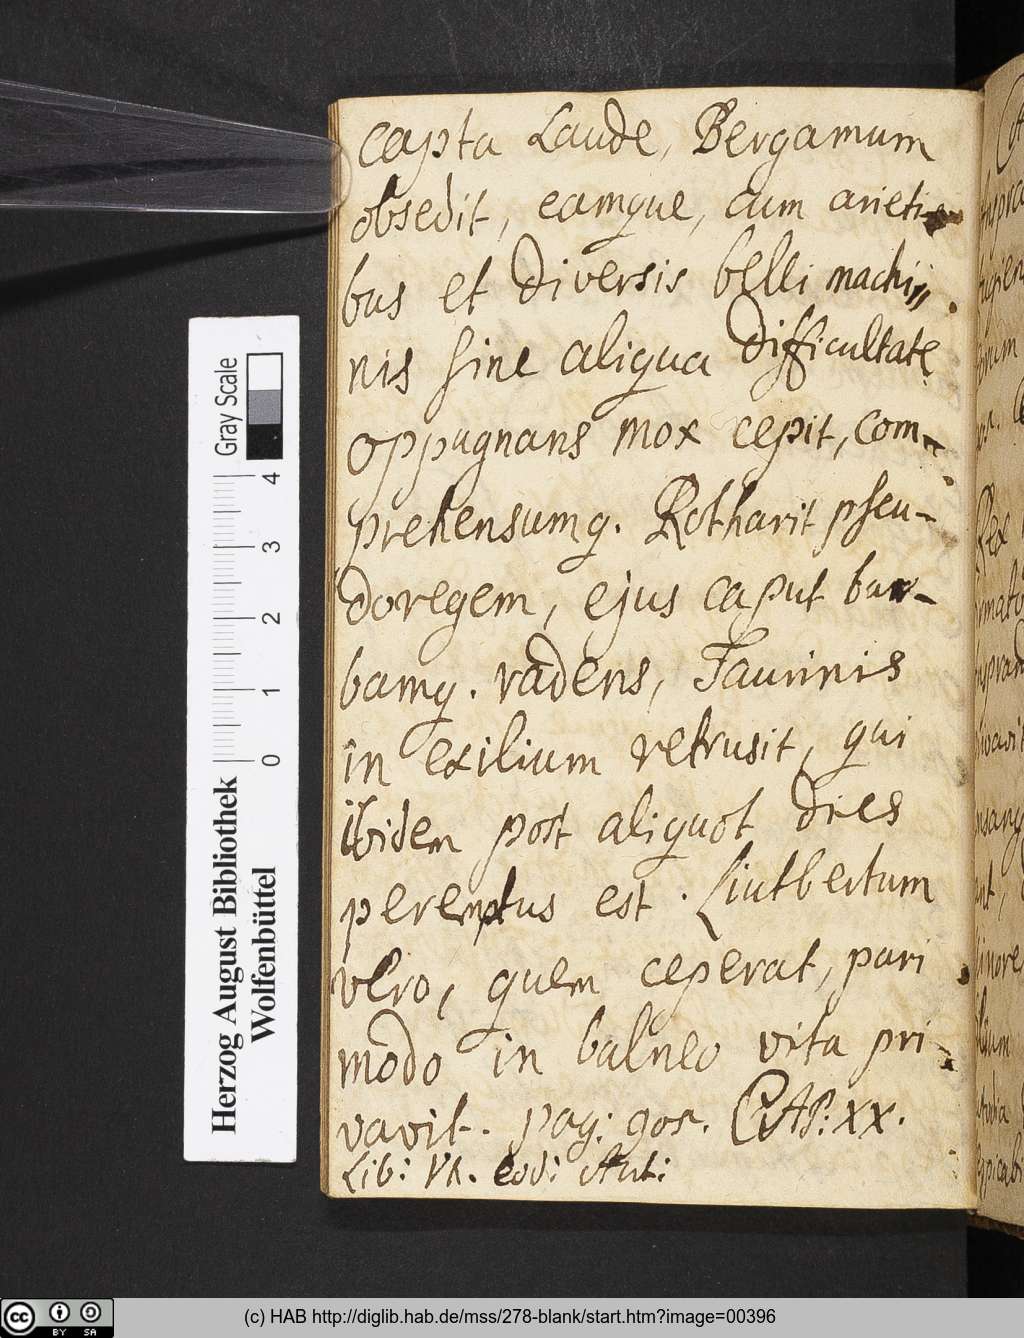 capta Laude, Bergamum
obsedit, eamque, cum arieti-
bus et diversis belli machi
nis sine aliqua difficultate
oppugnans mox cepit, com-
prehensumq. Rotharit pseu-
doregem, ejus caput bar-
bamq. radens, Taurinis
in exilium retrusit, qui
ibidem post aliquot dies
peremptus est. Liutbertum
vero, quem ceperat, pari
modo in balneo vita pri-
vavit. pag: 905. CAP: XX.
Lib: VI. eod: Aut:
Herzog August Bibliothek
Wolfenbüttel
Gray Scale
0 1 2 3 4
cc BY SA
(c) HAB http://diglib.hab.de/mss/278-blank/start.htm?image=00396